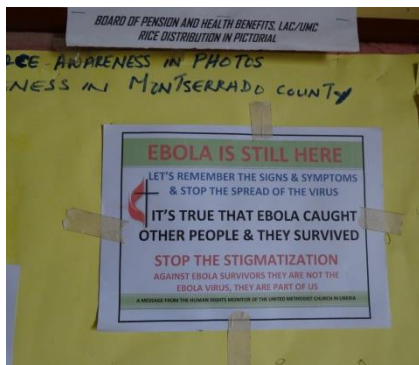 BOARD OF PENSION AND HEALTH BENEFITS, LAC/UMC
RICE DISTRIBUTION IN PICTORIAL
AWARENESS IN PHOTOS
NESS IN MONTSERRADO COUNTY
EBOLA IS STILL HERE
LET'S REMEMBER THE SIGNS & SYMPTOMS
& STOP THE SPREAD OF THE VIRUS
IT'S TRUE THAT EBOLA CAUGHT
OTHER PEOPLE & THEY SURVIVED
STOP THE STIGMATIZATION
AGAINST EBOLA SURVIVORS THEY ARE NOT THE
EBOLA VIRUS, THEY ARE PART OF US
A MESSAGE FROM THE HUMAN RIGHTS MONITOR OF THE UNITED METHODIST CHURCH IN LIBERIA